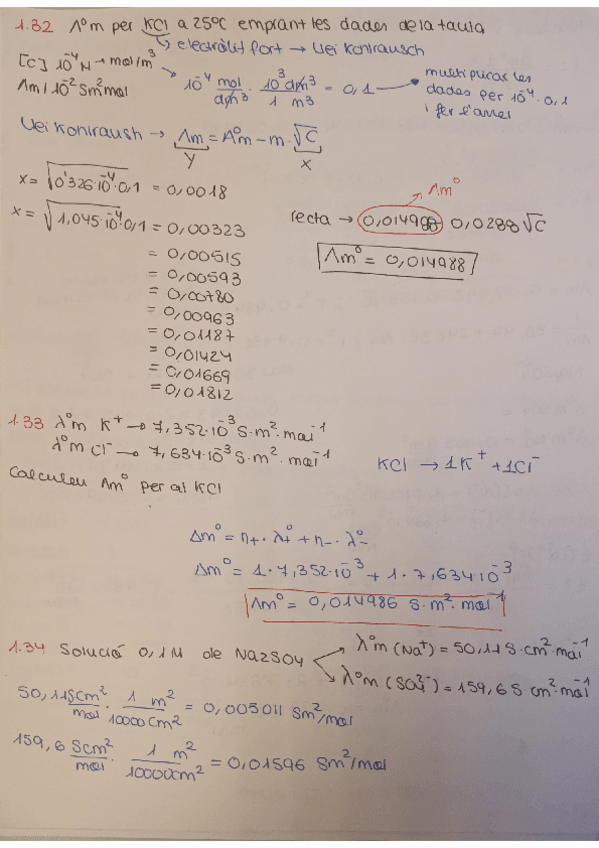 1.32 Λ°m per KCl a 25ºC emprant les dades de la taula
↳ electròlit fort → Llei Kohlrausch
[C] 10⁻⁴ N → mol/m³
Λm / 10⁻² Sm²mol
10⁻⁴ mol/dm³ · 10³ dm³/1 m³ = 0,1 → multiplicar les
dades per 10⁻⁴ · 0,1
i fer l'arrel
Llei Kohlraush → Λm = Λ°m - m · √C
y x
x = √0'326·10⁻⁴·0,1 = 0,0018
x = √1,045·10⁻⁴·0,1 = 0,00323
= 0,00515
= 0,00593
= 0,00780
= 0,00963
= 0,01187
= 0,01424
= 0,01669
= 0,01812
Λm°
recta → 0,014988 0,0288√C
Λm° = 0,014988
1.33 λ°m K⁺ → 7,352·10⁻³ S·m²·mol⁻¹
λ°m Cl⁻ → 7,634·10⁻³ S·m²·mol⁻¹
KCl → 1K⁺ + 1Cl⁻
Calculeu Λm° per al KCl
Λm° = n₊ · λ₊° + n₋ · λ°₋
Λm° = 1 · 7,352·10⁻³ + 1 · 7,634 10⁻³
Λm° = 0,014986 S·m²·mol⁻¹
1.34 Solució 0,1M de Na2SO4
λ°m (Na⁺) = 50,11 S·cm²·mol⁻¹
λ°m (SO₄²⁻) = 159,6 S cm²·mol⁻¹
50,11 Scm²/mol · 1 m²/10000 cm² = 0,005011 Sm²/mol
159,6 Scm²/mol · 1 m²/10000 cm² = 0,01596 Sm²/mol